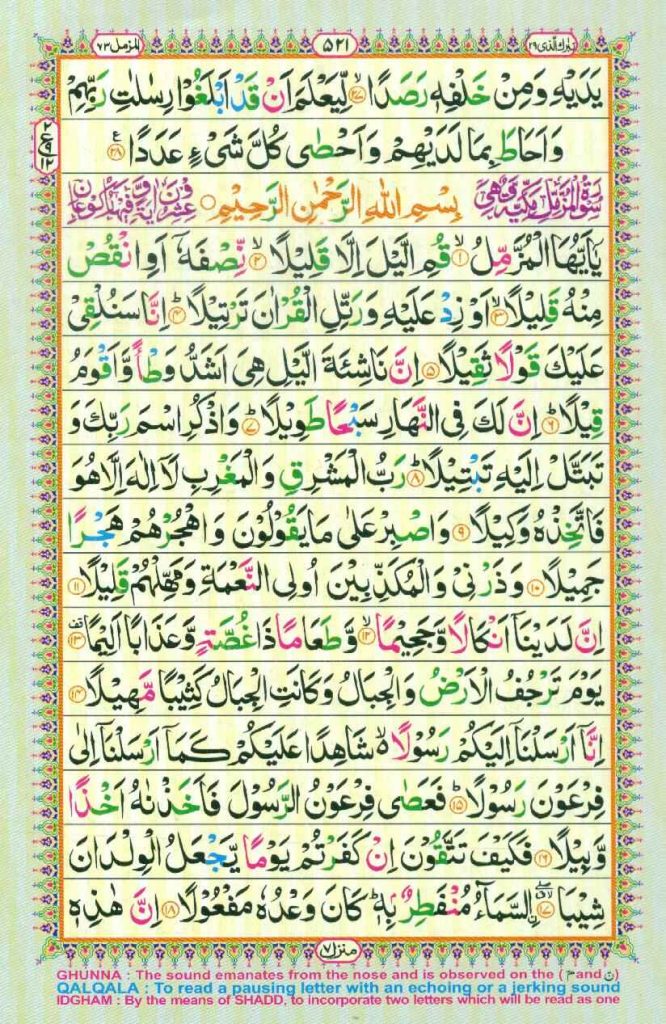 تبارك الذي ٢٩
٥٢١
المزمل ٧٣
يَدَيْهِ وَمِنْ خَلْفِهٖ رَصَدًا ۙ‏﴿۲۷﴾ لِّيَعْلَمَ اَنْ قَدْ اَبْلَغُوْا رِسٰلٰتِ رَبِّهِمْ
وَاَحَاطَ بِمَا لَدَيْهِمْ وَاَحْصٰى كُلَّ شَىْءٍ عَدَدًا ﴿۲۸﴾ ع
سُوْرَةُ الْمُزَّمِّلِ مَكِّيَّةٌ وَّهِىَ بِسْمِ اللّٰهِ الرَّحْمٰنِ الرَّحِيْمِ ○ عِشْرُوْنَ اٰيَةً وَّفِيْهَا رُكُوْعَانِ
يٰۤاَيُّهَا الْمُزَّمِّلُ ۙ﴿۱﴾ قُمِ الَّيْلَ اِلَّا قَلِيْلًا ۙ﴿۲﴾ نِّصْفَهٗۤ اَوِ انْقُصْ
مِنْهُ قَلِيْلًا ۙ﴿۳﴾ اَوْ زِدْ عَلَيْهِ وَرَتِّلِ الْقُرْاٰنَ تَرْتِيْلًا ؕ﴿۴﴾ اِنَّا سَنُلْقِىْ
عَلَيْكَ قَوْلًا ثَقِيْلًا ﴿۵﴾ اِنَّ نَاشِئَةَ الَّيْلِ هِىَ اَشَدُّ وَطْاً وَّاَقْوَمُ
قِيْلًا ؕ﴿۶﴾ اِنَّ لَكَ فِى النَّهَارِ سَبْحًا طَوِيْلًا ؕ﴿۷﴾ وَاذْكُرِ اسْمَ رَبِّكَ وَ
تَبَتَّلْ اِلَيْهِ تَبْتِيْلًا ؕ﴿۸﴾ رَبُّ الْمَشْرِقِ وَالْمَغْرِبِ لَاۤ اِلٰهَ اِلَّا هُوَ
فَاتَّخِذْهُ وَكِيْلًا ﴿۹﴾ وَاصْبِرْ عَلٰى مَا يَقُوْلُوْنَ وَاهْجُرْهُمْ هَجْرًا
جَمِيْلًا ﴿۱۰﴾ وَذَرْنِىْ وَالْمُكَذِّبِيْنَ اُولِى النَّعْمَةِ وَمَهِّلْهُمْ قَلِيْلًا ﴿۱۱﴾
اِنَّ لَدَيْنَاۤ اَنْكَالًا وَّجَحِيْمًا ۙ﴿۱۲﴾ وَّطَعَامًا ذَا غُصَّةٍ وَّعَذَابًا اَلِيْمًا ﴿۱۳﴾
يَوْمَ تَرْجُفُ الْاَرْضُ وَالْجِبَالُ وَكَانَتِ الْجِبَالُ كَثِيْبًا مَّهِيْلًا ﴿۱۴﴾
اِنَّاۤ اَرْسَلْنَاۤ اِلَيْكُمْ رَسُوْلًا ۙ شَاهِدًا عَلَيْكُمْ كَمَاۤ اَرْسَلْنَاۤ اِلٰى
فِرْعَوْنَ رَسُوْلًا ؕ﴿۱۵﴾ فَعَصٰى فِرْعَوْنُ الرَّسُوْلَ فَاَخَذْنٰهُ اَخْذًا
وَّبِيْلًا ﴿۱۶﴾ فَكَيْفَ تَتَّقُوْنَ اِنْ كَفَرْتُمْ يَوْمًا يَّجْعَلُ الْوِلْدَانَ
شِيْبَا ﴿۱۷﴾ ۨالسَّمَآءُ مُنْفَطِرٌۢ بِهٖ ؕ كَانَ وَعْدُهٗ مَفْعُوْلًا ﴿۱۸﴾ اِنَّ هٰذِهٖ
منزل ٧
GHUNNA : The sound emanates from the nose and is observed on the (م and ن)
QALQALA : To read a pausing letter with an echoing or a jerking sound
IDGHAM : By the means of SHADD, to incorporate two letters which will be read as one